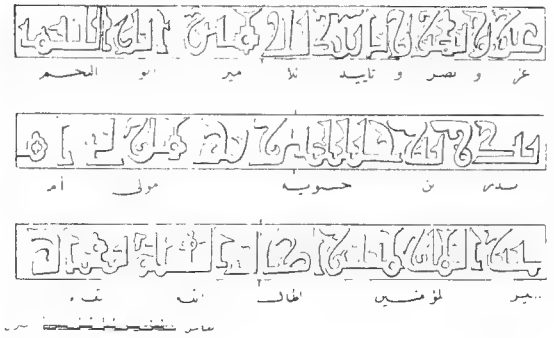 عز و نصر و تاييد للا مير ابو النجم
بدر بن حسنويه مولى أم
ير لمؤمنين اطال الله بقاء